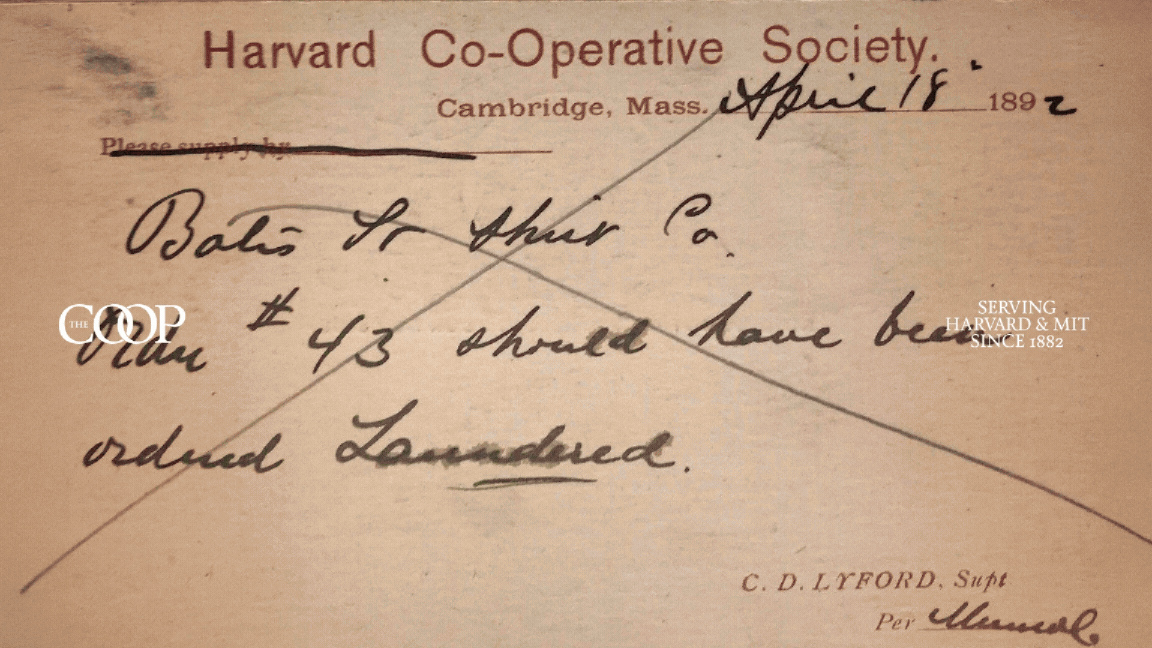 Harvard Co-Operative Society.
Cambridge, Mass. April 18 1892
Please supply by
Bates St Shirt Co.
# 43 should have been
ordered Laundered.
THE COOP
SERVING
HARVARD & MIT
SINCE 1882
C. D. LYFORD, Supt
Per